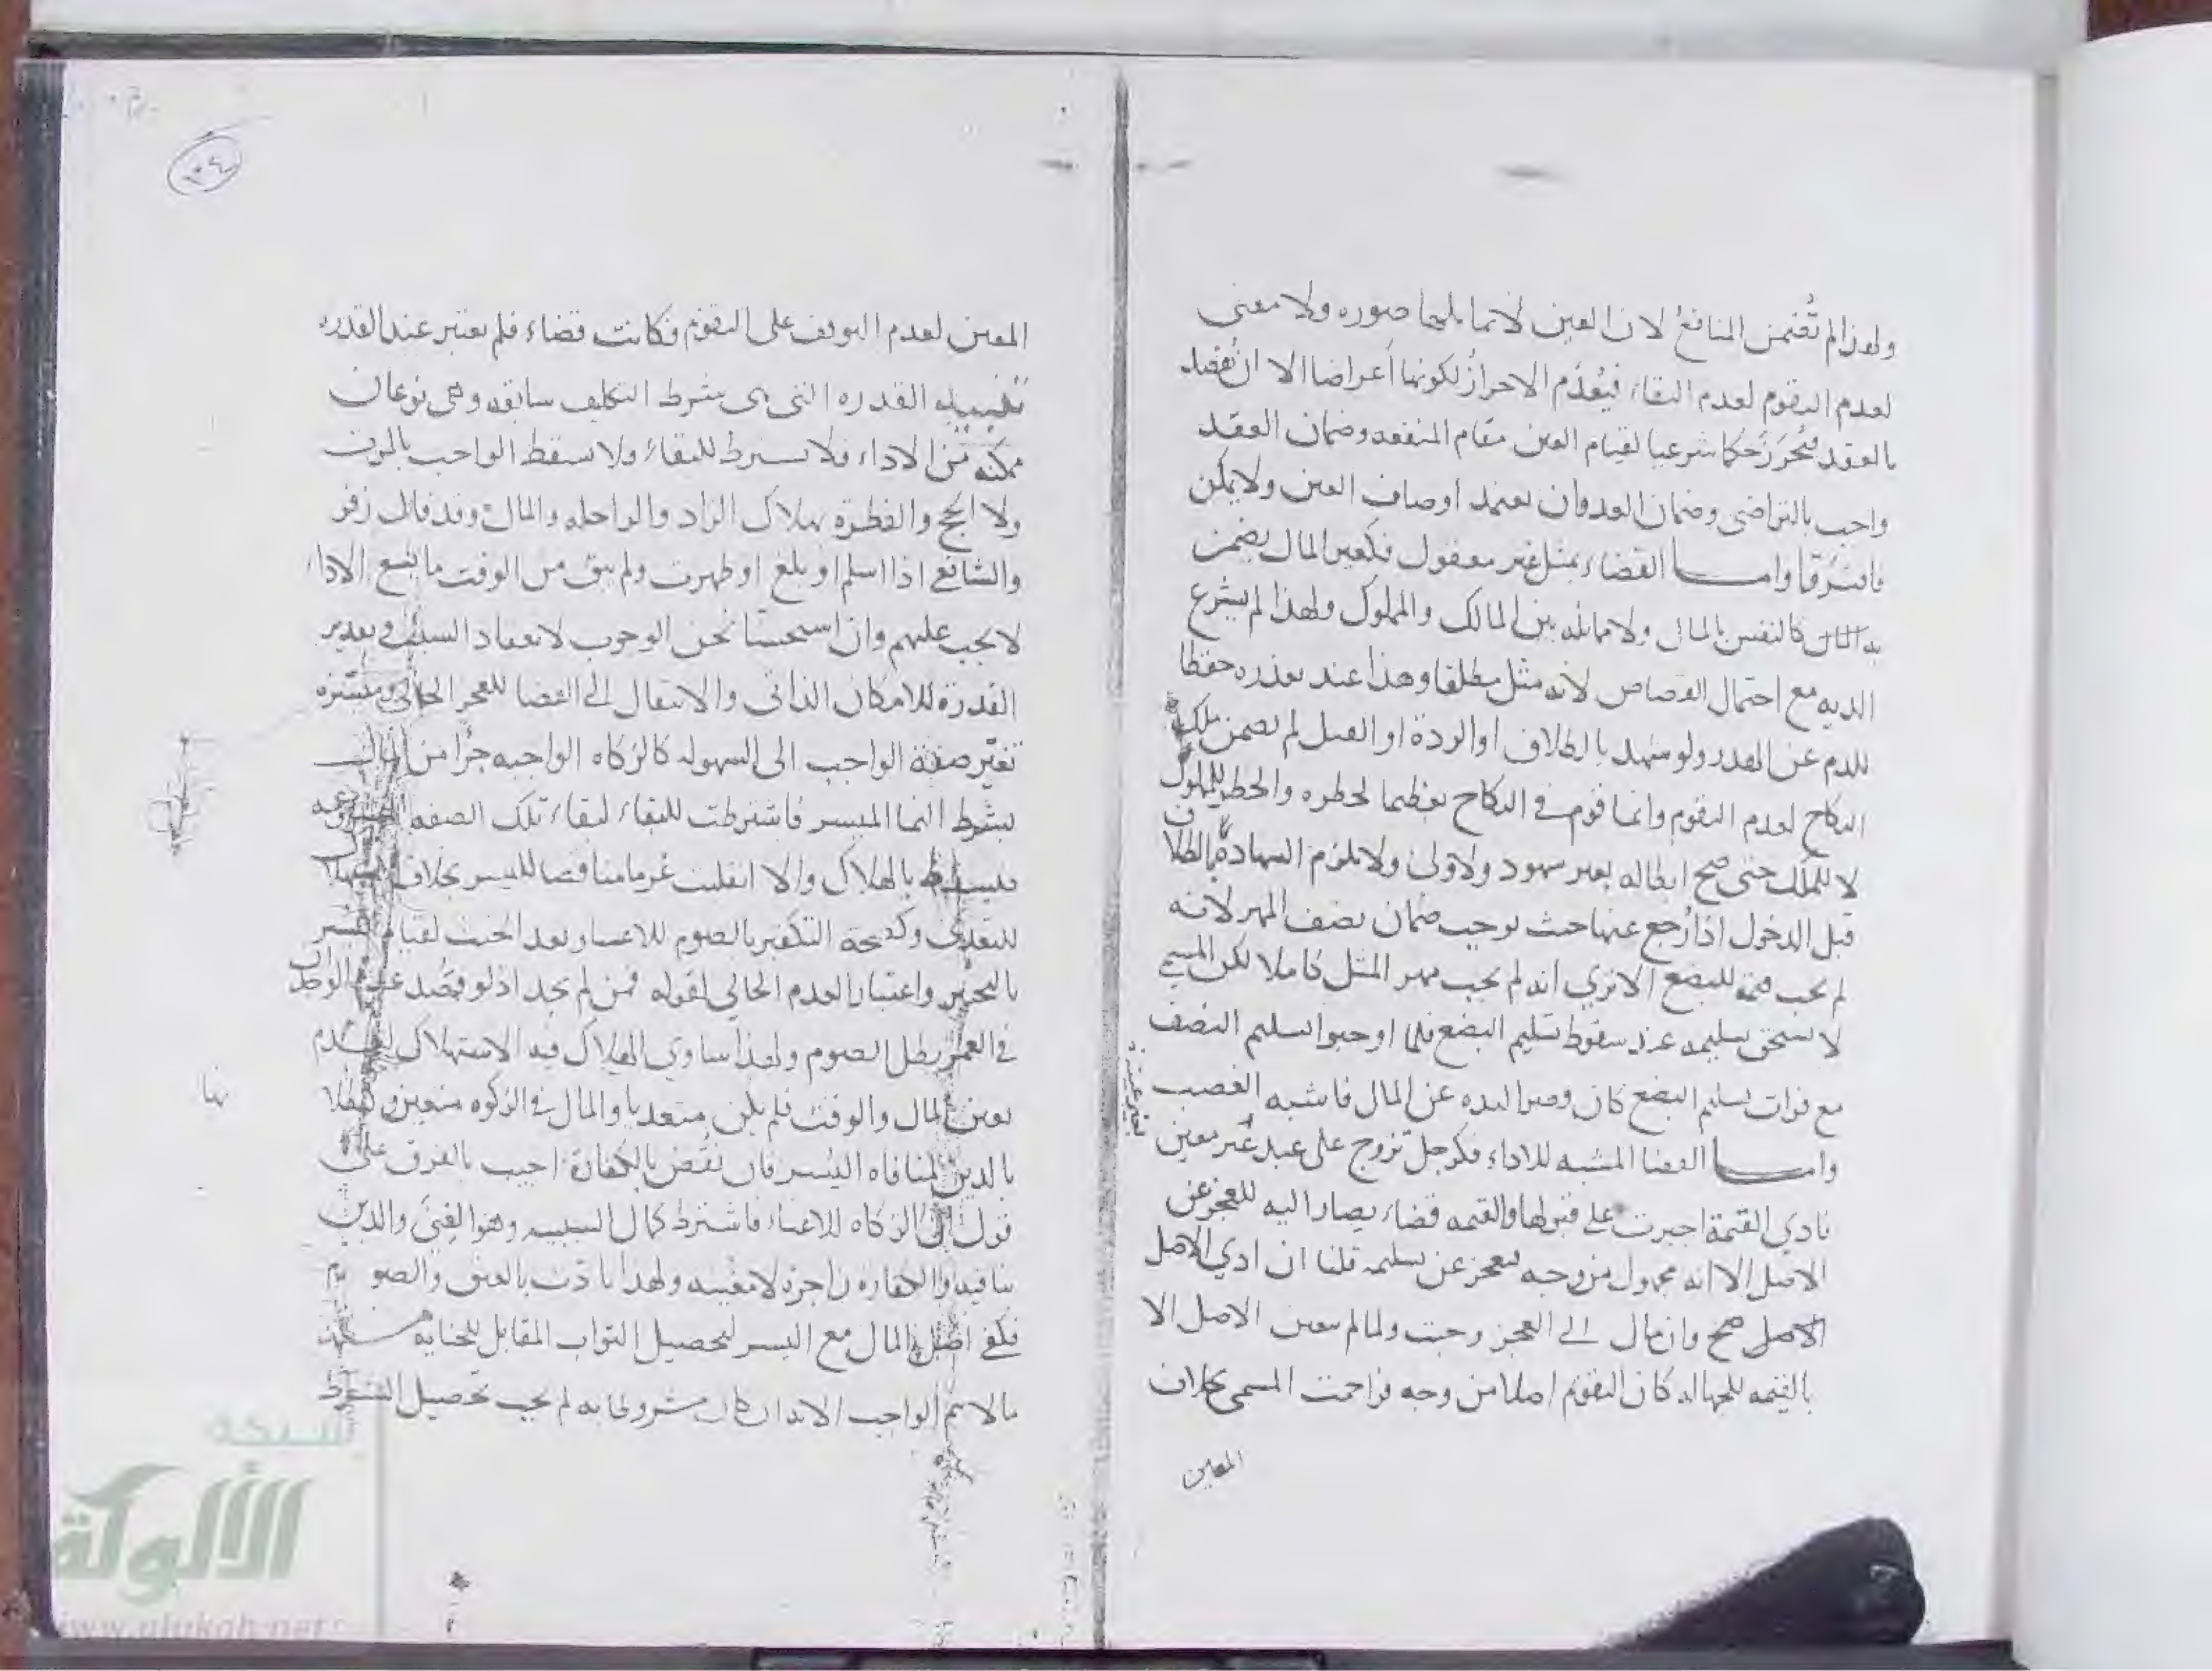 ولهذا لم تُضمن المنافع لان العين لا تماثلها صورة ولا معنى
لعدم التقوم لعدم البقاء فيُعدَم الاحرازُ لكونها أعراضا الا ان
بالعقد فتحرز حكما شرعيا لقيام العين مقام المنفعه وضمان العقد
واجب بالتراضى وضمان العدوان يعتمد اوصاف العين ولا يمكن
فافترقا وامـــا القضاء بمثل غير معقول فكغير المال يضمن
به المال كالنفس بالمال ولا مماثله بين المالك والمملوك ولهذا لم يشرع
الديه مع احتمال القصاص لانه مثل مطلقا وهذا عند تعذره حفظا
للدم عن الهدر ولو شهد بالطلاق او الردة او القتل لم يضمن ملك
النكاح لعدم التقوم وانما قوم في النكاح تعظيما لخطره والخطر للمملوك
لا للملك حتى صح ابطاله بغير شهود ولا ولى ولا يلزم الشهادة بالطلاق
قبل الدخول اذا رجع عنها حيث يوجب ضمان نصف المهر لانه
لم يجب قيمة للبضع الا ترى انه لم يجب مهر المثل كاملا لكن المسمى
لا يستحق تسليمه عند سقوط تسليم البضع فلما اوجبوا تسليم النصف
مع فوات تسليم البضع كان قصر اليده عن المال فاشبه الغصب
وامـــا القضا المشبه للاداء فكرجل تزوج على عبد غير معين
فادي القيمة اجبرت على قبولها والقيمه قضاء يصار اليه للعجز عن
الاصل الا انه مجهول من وجه فعجز عن تسليمه قلنا ان ادي الاصل
الاصل صح وان مال الى العجز وجبت ولما لم يتعين الاصل الا
بالقيمه للجهاله كان التقويم اصلا من وجه فزاحمت المسمى بخلاف
المعين
٢٤
المعين لعدم التوقف على التقويم فكانت قضاء فلم تعتبر عند القدره
تقسيم القدره التي هى شرط التكليف سابقه وهي نوعان
ممكنه من الاداء فلا تشترط للبقاء ولا يسقط الواجب بالموت
ولا الحج والفطرة بهلاك الزاد والراحله والمال وقد قال زفر
والشافعي اذا اسلم او بلغ او طهرت ولم يبق من الوقت ما يسع الاداء
لا يجب عليهم وان استحسنا نحن الوجوب لانعقاد السبب وتقدير
القدرة للامكان الذاتى والانتقال الى القضا للعجز الحالى وميسره
تغير صفة الواجب الى السهوله كالزكاه الواجبه جزأ من المال
بشرط النما الميسر فاشترطت للبقاء لبقاء تلك الصفه
فيسقط بالهلاك والا انقلبت غرما مناقضا لليسر بخلاف
للتعدى وكصحة التكفير بالصوم للاعسار بعد الحنث لقيام اليسر
بالتخيير واعتبار العدم الحالي لقوله فمن لم يجد اذ لو قصد عدم الوجدان
في العمر بطل الصوم ولهذا ساوي الهلاك فيه الاستهلاك لعدم
تعين المال والوقت فلم يكن متعديا والمال في الزكوه متعين
بالدين لمنافاه اليسر فان نقض بالكفارة اجيب بالفرق على
قول ان الزكاه للاغناء فاشترط كمال السبب وهو الغنى والدين
ينافيه والكفاره زاجرة لا مغنيه ولهذا تادت بالعتق والصوم
فكفى اصل المال مع اليسر لتحصيل الثواب المقابل للجناية
ما لا يتم الواجب الا به ان كان مشروطا به لم يجب تحصيل الشرط